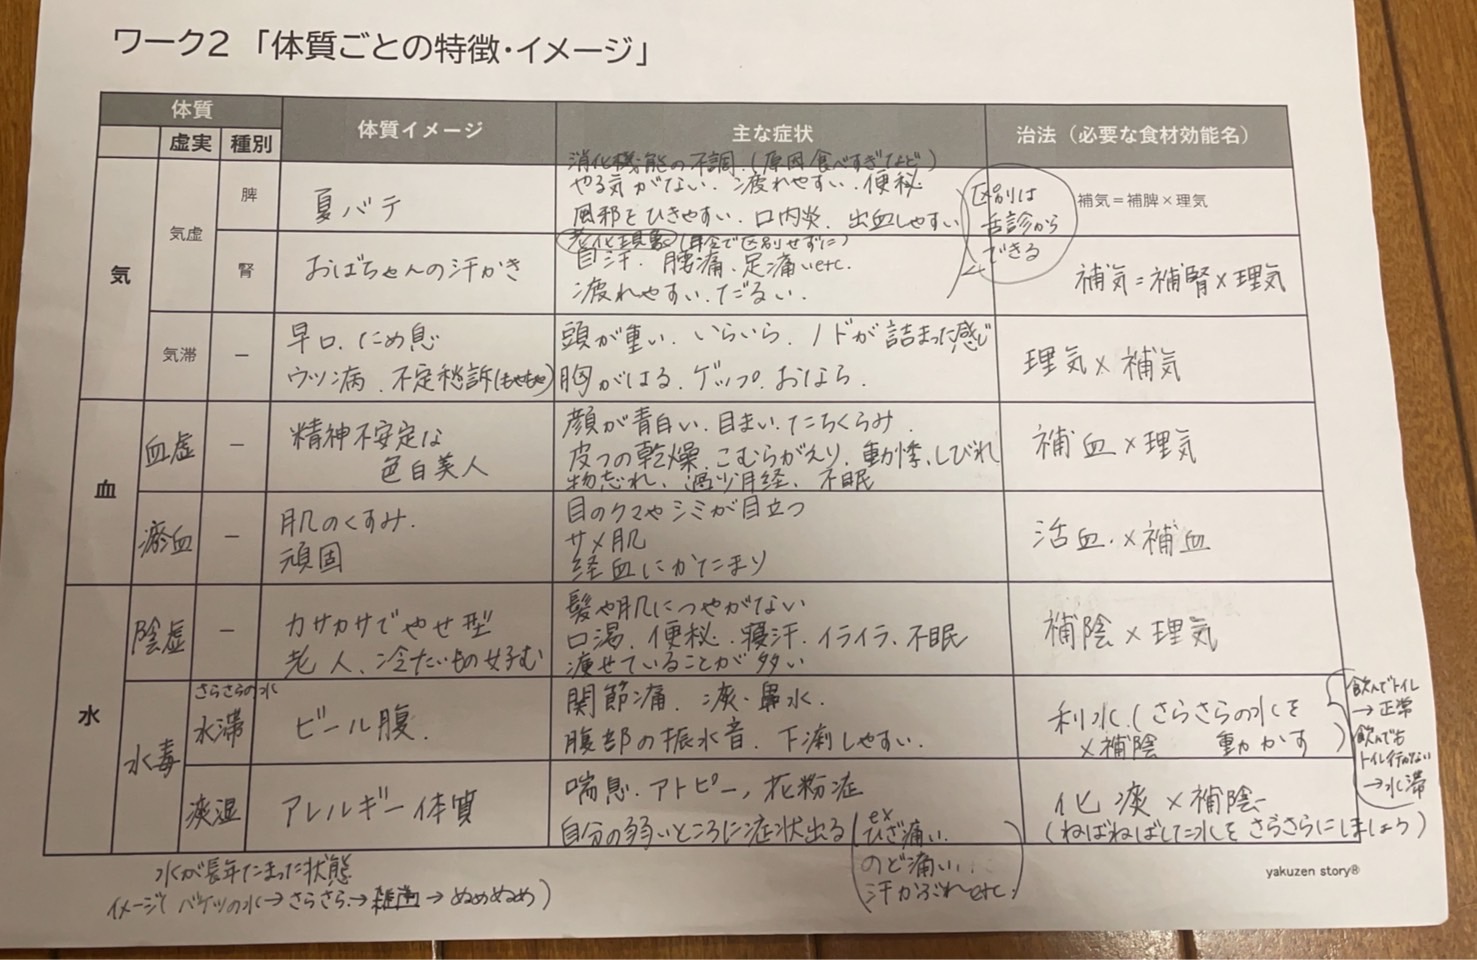 ワーク2 「体質ごとの特徴・イメージ」
体質
虚実 種別
体質イメージ
主な症状
治法（必要な食材効能名）
気
気虚
脾
夏バテ
消化機能の不調（原因 食べすぎなど）
やる気がない、疲れやすい、便秘
風邪をひきやすい、口内炎、出血しやすい
区別は
舌診から
できる
補気＝補脾×理気
腎
おばちゃんの汗かき
老化現象（年令で区別せずに）
自汗、腰痛、足痛いetc.
疲れやすい、だるい、
補気＝補腎×理気
気滞
－
早口、ため息
ウツ病、不定愁訴（もやもや）
頭が重い、いらいら、ノドが詰まった感じ
胸がはる、ゲップ、おなら、
理気×補気
血
血虚
－
精神不安定な
色白美人
顔が青白い、目まい、たちくらみ、
皮フの乾燥、こむらがえり、動悸、しびれ
物忘れ、過少月経、不眠
補血×理気
瘀血
－
肌のくすみ、
頑固
目のクマやシミが目立つ
サメ肌
経血にかたまり
活血、×補血
水
陰虚
－
カサカサでやせ型
老人、冷たいもの好む
髪や肌につやがない
口渇、便秘、寝汗、イライラ、不眠
痩せていることが多い
補陰×理気
水毒
さらさらの水
水滞
ビール腹、
関節痛、痰・鼻水、
腹部の振水音、下痢しやすい、
利水、（さらさらの水を
×補陰 動かす）
飲んでトイレ
→正常
飲んでも
トイレ行かない
→水滞
痰湿
アレルギー体質
喘息、アトピー、花粉症
自分の弱いところに症状出る
ex
ひざ痛い、
のど痛い、
汗かぶれetc.
化痰×補陰
（ねばねばした水をさらさらにしましょう）
水が長年たまった状態
イメージ（バケツの水→さらさら→ →ぬめぬめ）
yakuzen story®